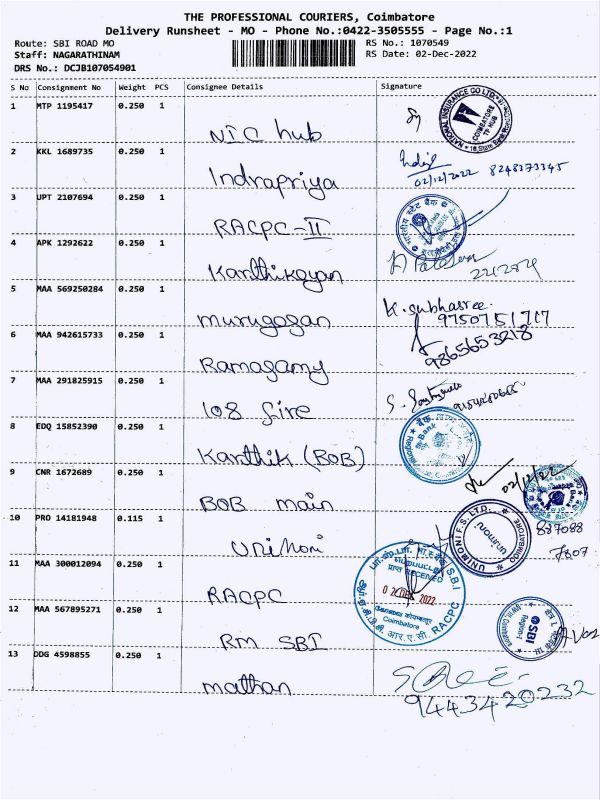 THE PROFESSIONAL COURIERS, Coimbatore
Delivery Runsheet - MO - Phone No.:0422-3505555 - Page No.:1
Route: SBI ROAD MO
RS No.: 1070549
Staff: NAGARATHINAM
RS Date: 02-Dec-2022
DRS No.: DCJB107054901
S No Consignment No Weight PCS Consignee Details Signature
1 MTP 1195417 0.250 1
NIC hub
NATIONAL INSURANCE CO LTD. COIMBATORE TP HUB
2 KKL 1689735 0.250 1
Indrapriya
02/12/2022 8248373345
3 UPT 2107694 0.250 1
RACPC-II
4 APK 1292622 0.250 1
Karthikeyan
5 MAA 569250284 0.250 1
murugogan
K. subhasree.
9750751717
6 MAA 942615733 0.250 1
Ramasamy
9865653218
7 MAA 291825915 0.250 1
108 fire
8 EDQ 15852390 0.250 1
Karthik (BOB)
9 CNR 1672689 0.250 1
BOB main
02/12/22
10 PRO 14181948 0.115 1
Unimoni
UNIMONI F.S. LTD. unimoni COIMBATORE
887088
7807
11 MAA 300012094 0.250 1
RACPC
RECEIVED
02 DEC 2022
Coimbatore
S.B.I. RACPC
12 MAA 567895271 0.250 1
RM SBI
SBI
13 DDG 4598855 0.250 1
mathan
9443420232